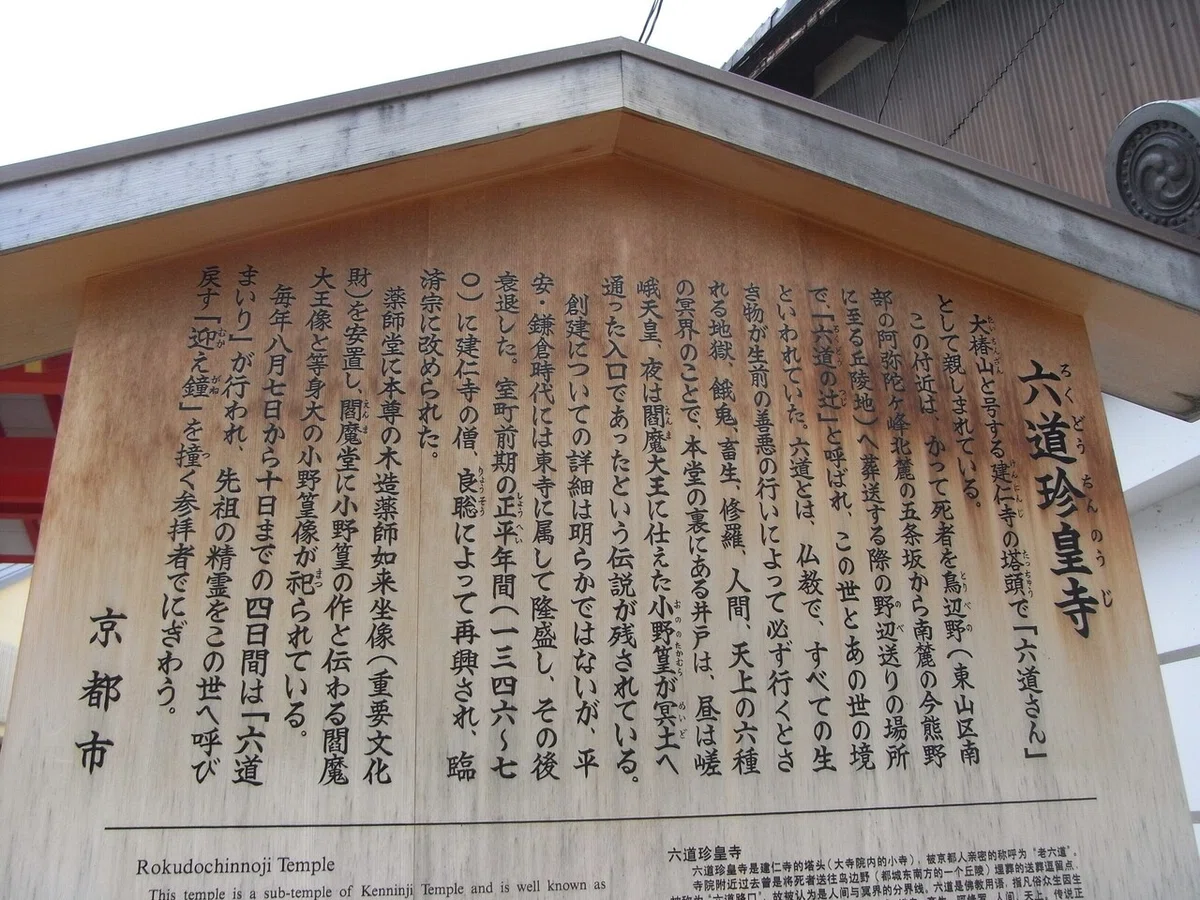 六道珍皇寺
ろくどうちんのうじ
大椿山と号する建仁寺の塔頭で「六道さん」
として親しまれている。
この付近は、かって死者を鳥辺野(東山区南
部の阿弥陀ヶ峰北麓の五条坂から南麓の今熊野
に至る丘陵地)へ葬送する際の野辺送りの場所
で、「六道の辻」と呼ばれ、この世とあの世の境
といわれていた。六道とは、仏教で、すべての生
き物が生前の善悪の行いによって必ず行くとさ
れる地獄、餓鬼、畜生、修羅、人間、天上の六種
の冥界のことで、本堂の裏にある井戸は、昼は嵯
峨天皇、夜は閻魔大王に仕えた小野篁が冥土へ
通った入口であったという伝説が残されている。
創建についての詳細は明らかではないが、平
安・鎌倉時代には東寺に属して隆盛し、その後
衰退した。室町前期の正平年間(一三四六〜七
〇)に建仁寺の僧、良聡によって再興され、臨
済宗に改められた。
薬師堂に本尊の木造薬師如来坐像(重要文化
財)を安置し、閻魔堂に小野篁の作と伝わる閻魔
大王像と等身大の小野篁像が祀られている。
毎年八月七日から十日までの四日間は「六道
まいり」が行われ、先祖の精霊をこの世へ呼び
戻す「迎え鐘」を撞く参拝者でにぎわう。
京都市
Rokudochinnoji Temple
This temple is a sub-temple of Kenninji Temple and is well known as
六道珍皇寺
六道珍皇寺是建仁寺的塔头(大寺院内的小寺),被京都人亲密的称呼为"老六道"。
寺院附近过去曾是将死者送往鸟边野(都城东南方的一个丘陵)埋葬的送葬逗留点,
被称为"六道路口",故被认为是人间与冥界的分界线。六道是佛教用语,指凡俗众生因生